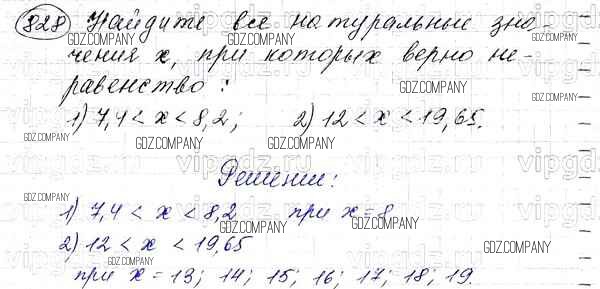 828 Найдите все натуральные зна-
чения x, при которых верно не-
равенство:
1) 7,4 < x < 8,2; 2) 12 < x < 19,65.
Решение:
1) 7,4 < x < 8,2 при x = 8
2) 12 < x < 19,65
при x = 13; 14; 15; 16; 17; 18; 19.